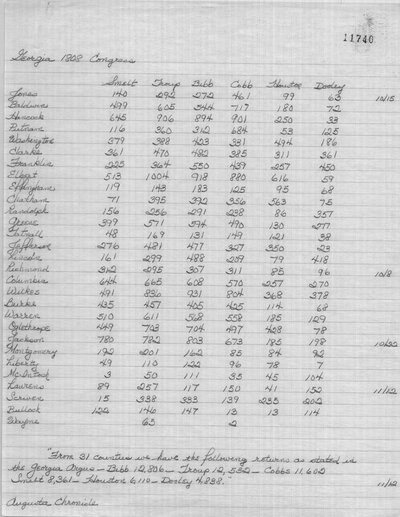 11740
Georgia 1808 Congress
Smelt Troup Bibb Cobb Houston Dooley
Jones 140 292 272 461 99 63 10/15
Baldwin 499 605 544 717 180 72
Hancock 645 906 894 901 250 33
Putnam 116 360 312 684 53 125
Washington 379 388 403 331 494 186
Clarke 361 470 482 385 311 361
Franklin 225 364 550 439 257 450
Elbert 513 1004 918 880 616 59
Effingham 119 143 183 125 95 68
Chatham 71 395 392 356 563 75
Randolph 156 256 291 238 86 357
Greene 599 571 594 490 130 277
Tatnall 48 169 131 149 121 38
Jefferson 276 481 477 327 350 23
Lincoln 161 299 488 209 79 418
Richmond 312 295 307 311 85 96 10/8
Columbia 644 665 608 570 257 270
Wilkes 491 836 931 804 368 378
Burke 435 457 405 425 114 68
Warren 510 611 568 558 185 129
Oglethorpe 449 723 704 497 428 78
Jackson 780 782 803 673 185 198 10/22
Montgomery 192 201 162 85 84 92
Liberty 49 110 122 96 78 7
McIntosh 3 50 111 35 45 104
Laurens 89 257 117 150 41 152 11/12
Scriven 15 338 333 139 235 202
Bullock 122 146 147 13 13 114
Wayne 65 2
"From 31 counties we have the following returns as stated in
the Georgia Argus - Bibb 12,806 - Troup 12,532 - Cobbs 11,602
Smelt 8,361 - Houston 6,110 - Dooley 4,838." 11/12
Augusta Chronicle